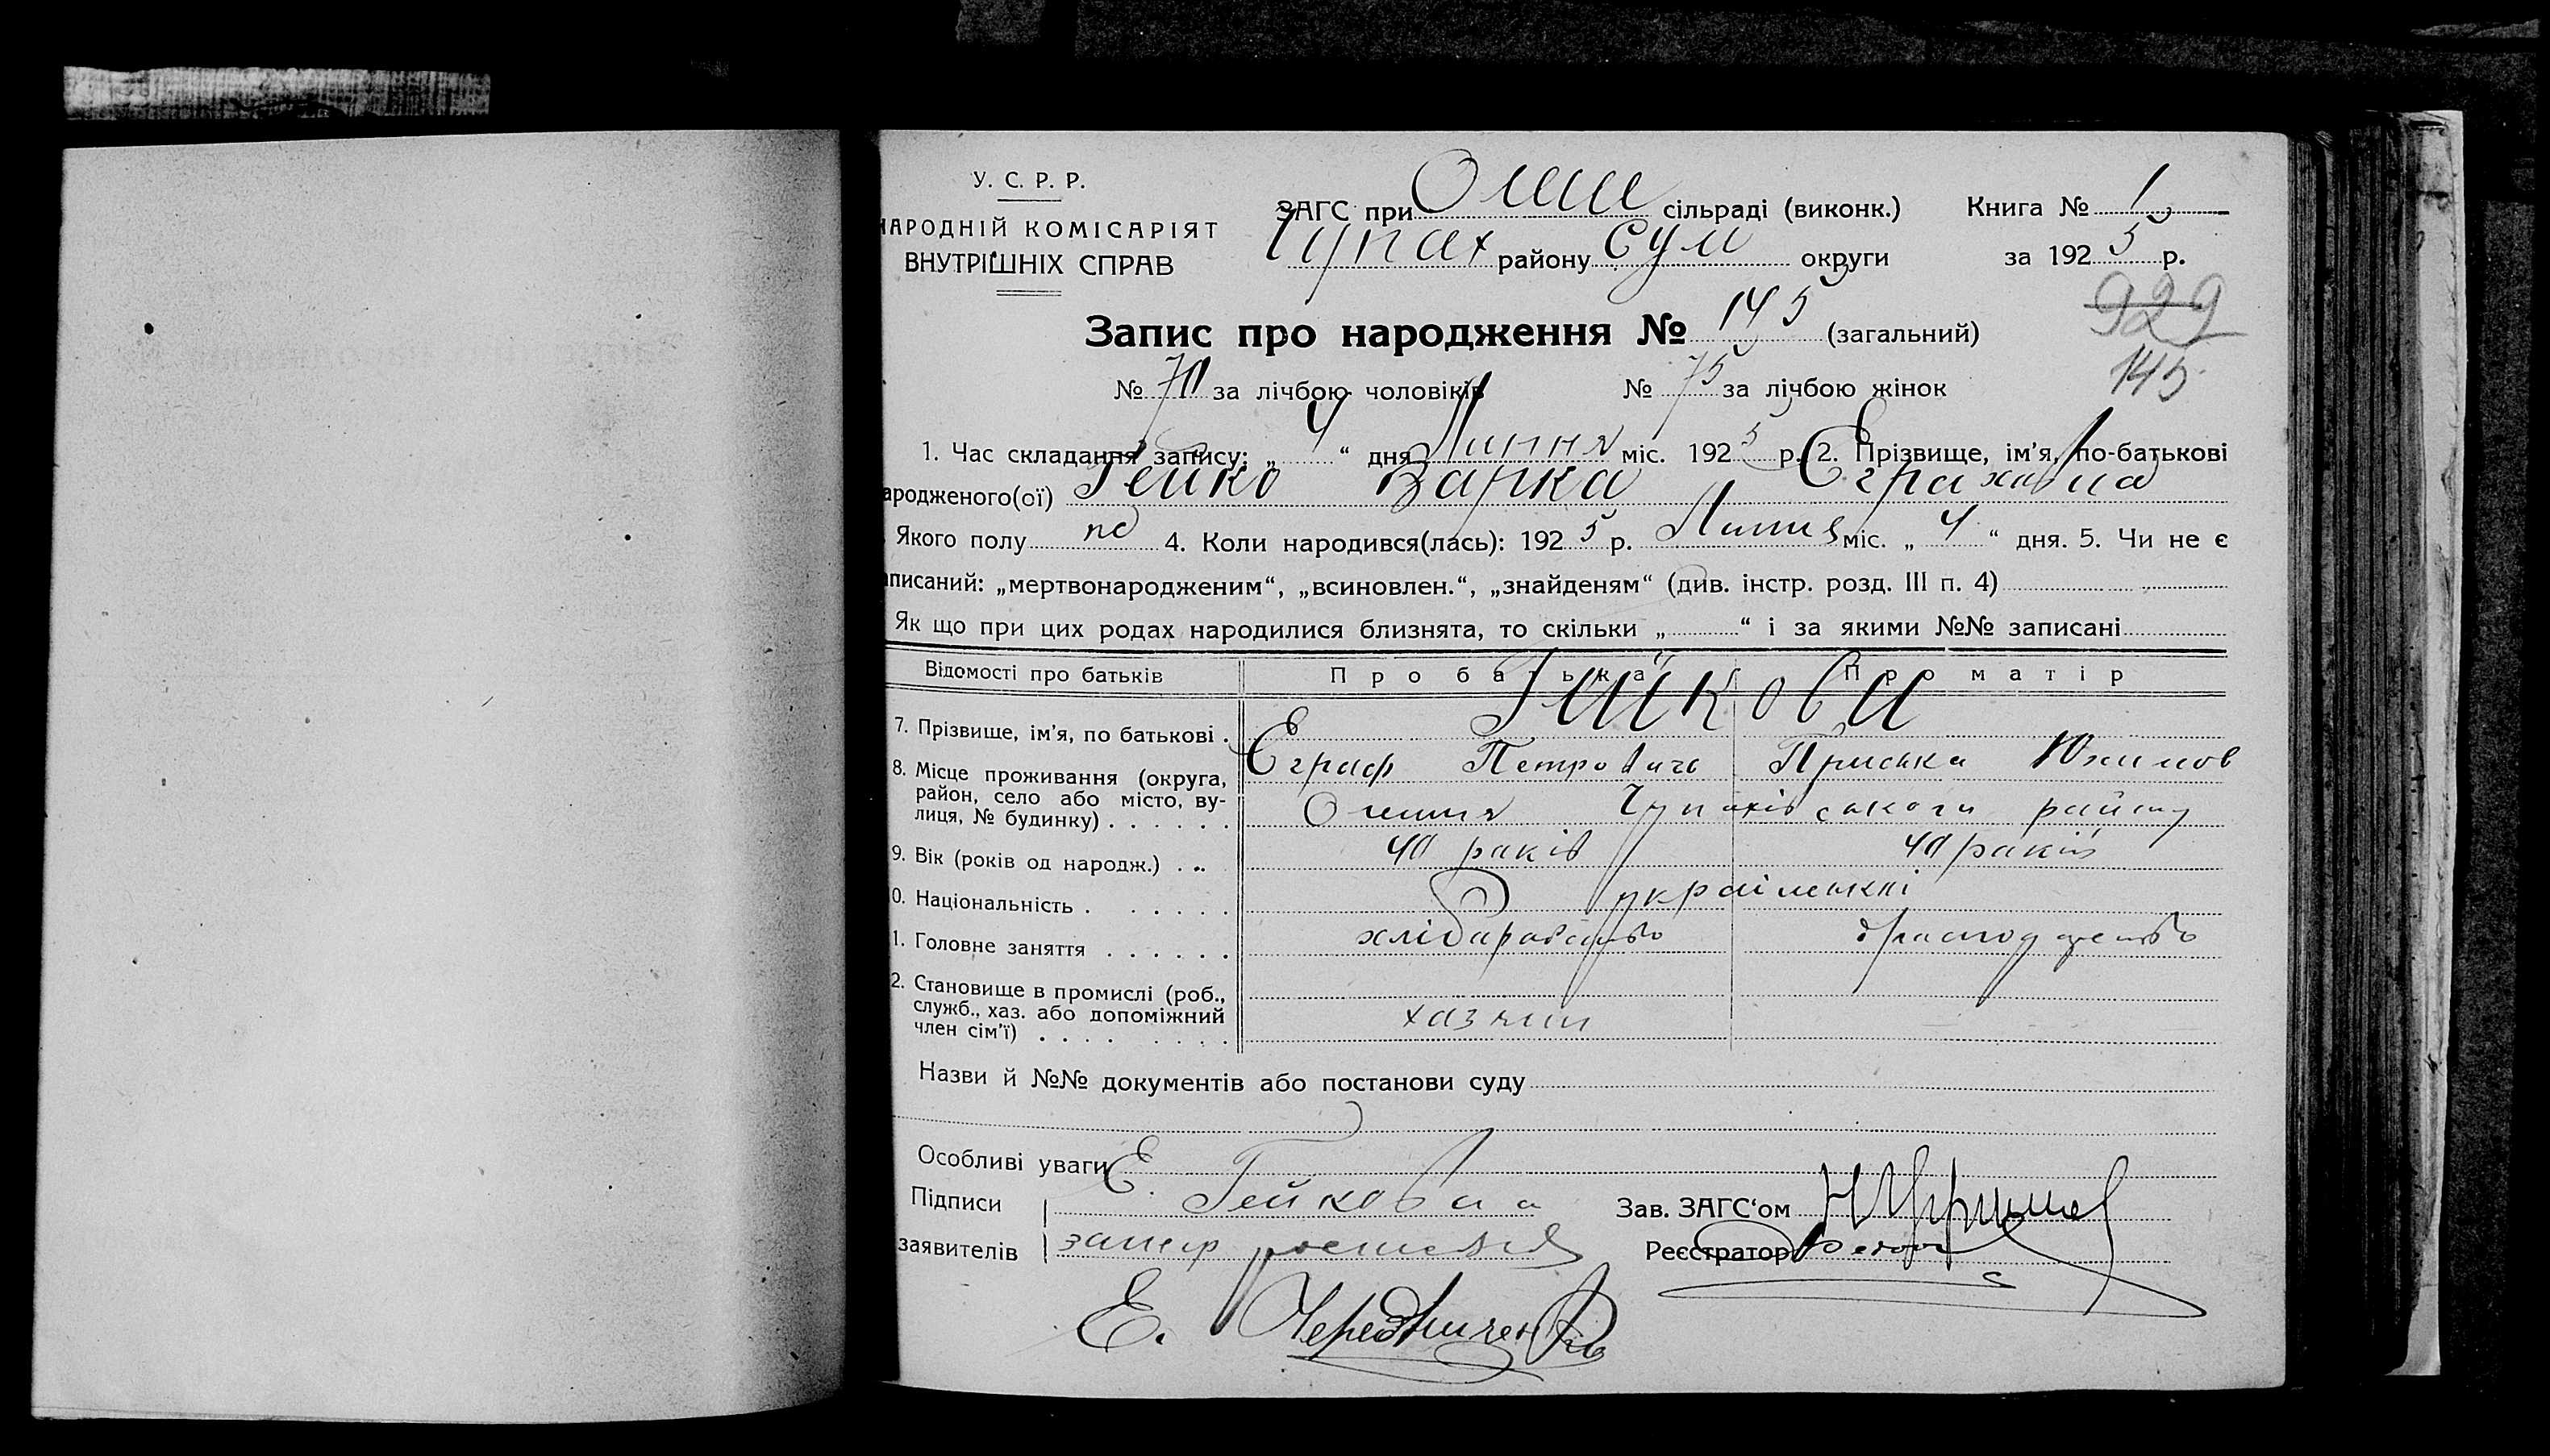 У. С. Р. Р.
НАРОДНІЙ КОМІСАРІЯТ
ВНУТРІШНІХ СПРАВ
ЗАГС при Олеш сільраді (виконк.) Книга № 1
Чупах району Сум округи за 1925 р.
929
Запис про народження № 145 (загальний)
145
№ 70 за лічбою чоловіків № 75 за лічбою жінок
1. Час складання запису: „ 4 “ дня Липня міс. 1925 р. 2. Прізвище, ім'я, по-батькові
ародженого(ої) Гейко Варка
Якого полу 4. Коли народився(лась): 1925 р. Липня міс. „ 4 “ дня. 5. Чи не є
аписаний: „мертвонародженим“, „всиновлен.“, „знайденям“ (див. інстр. розд. III п. 4)
Як що при цих родах народилися близнята, то скільки „ “ і за якими №№ записані
Відомості про батьків Про батька Про матір
7. Прізвище, ім'я, по батькові . Гейкови
Еграф Петровичь Приська Юхимов
8. Місце проживання (округа, район, село або місто, вулиця, № будинку) . . . . . . Олешня Чупахівського району
9. Вік (років од народж.) . . . 40 раків 40 раків
0. Національність . . . . . . українські
1. Головне заняття . . . . . . хлібаробство
2. Становище в промислі (роб., служб., хаз. або допоміжний член сім'ї) . . . . . . . . хазяин
Назви й №№ документів або постанови суду
Особливі уваги
Підписи Е. Гейковиа Зав. ЗАГС'ом
заявителів Реєстратор
Е. Чередниченко